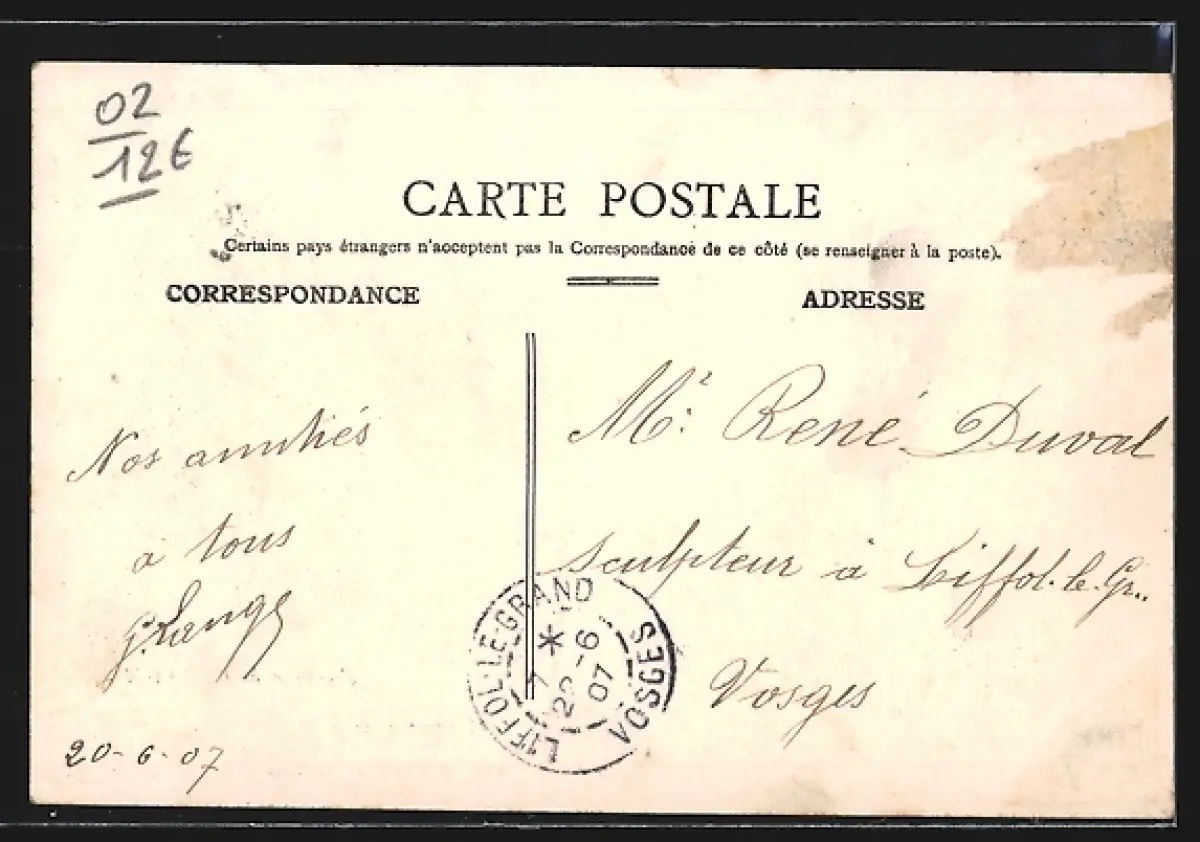 02
12€
CARTE POSTALE
Certains pays étrangers n'acceptent pas la Correspondance de ce côté (se renseigner à la poste).
CORRESPONDANCE
ADRESSE
Nos amitiés
à tous
G. Lange
20-6-07
Mr: René Duval
sculpteur à Liffol-le-Gr..
Vosges
LIFFOL-LE-GRAND
VOSGES
7 *
22-6
07